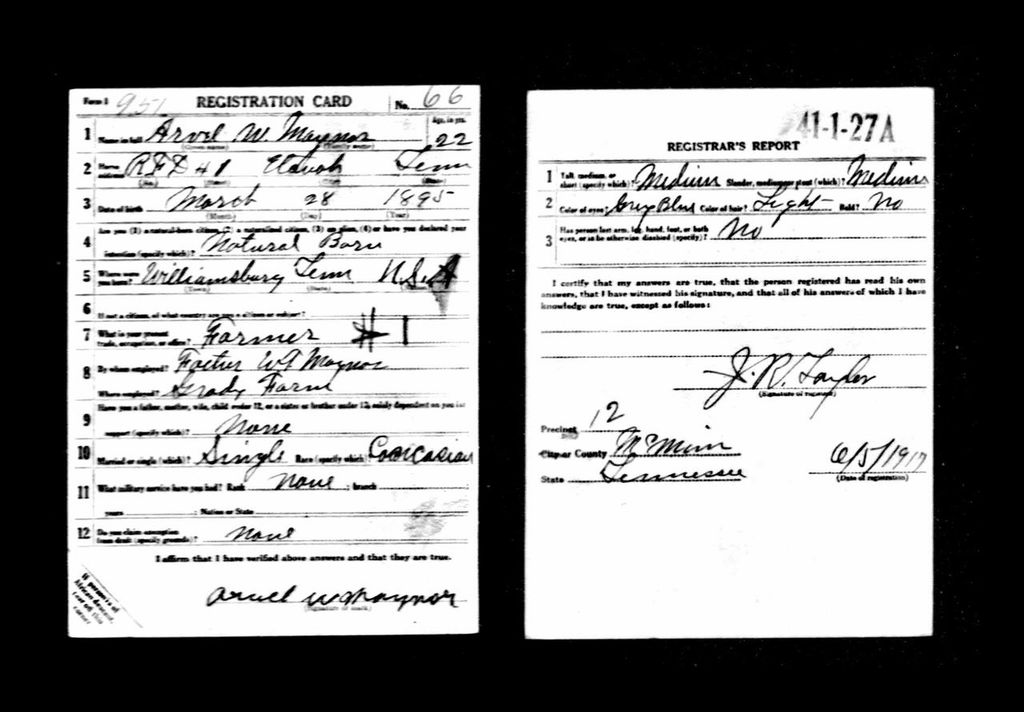 Form 1 951 REGISTRATION CARD No. 66
1 Name in full Arvel W. Maynor Age, in yrs. 22
(Given name) (Family name)
2 Home address RFD # 1 Etowah Tenn
(No.) (Street) (City) (State)
3 Date of birth March 28 1895
(Month) (Day) (Year)
Are you (1) a natural-born citizen, (2) a naturalized citizen, (3) an alien, (4) or have you declared your
4 intention (specify which)? Natural Born
5 Where were you born? Williamsburg Tenn U.S.A
(Town) (State)
6 If not a citizen, of what country are you a citizen or subject?
7 What is your present trade, occupation, or office? Farmer # 1
8 By whom employed? Father WT Maynor
Where employed? Grady Farm
Have you a father, mother, wife, child under 12, or a sister or brother under 12, solely dependent on you for
9 support (specify which)? None
10 Married or single (which)? Single Race (specify which)? Coorcasian
11 What military service have you had? Rank None ; branch
years ; Nation or State
12 Do you claim exemption from draft (specify grounds)? None
I affirm that I have verified above answers and that they are true.
Arvel W Maynor
(Signature or mark)
If person is of
African descent,
tear off this
corner
41-1-27A
REGISTRAR'S REPORT
1 Tall, medium, or short (specify which)? Medium Slender, medium, or stout (which)? Medium
2 Color of eyes? Grey Blue Color of hair? Light Bald? No
3 Has person lost arm, leg, hand, foot, or both eyes, or is he otherwise disabled (specify)? No
I certify that my answers are true, that the person registered has read his own
answers, that I have witnessed his signature, and that all of his answers of which I have
knowledge are true, except as follows:
J. R. Taylor
(Signature of registrar)
Precinct 12
City or County McMinn
State Tennessee 6/5/1917
(Date of registration)